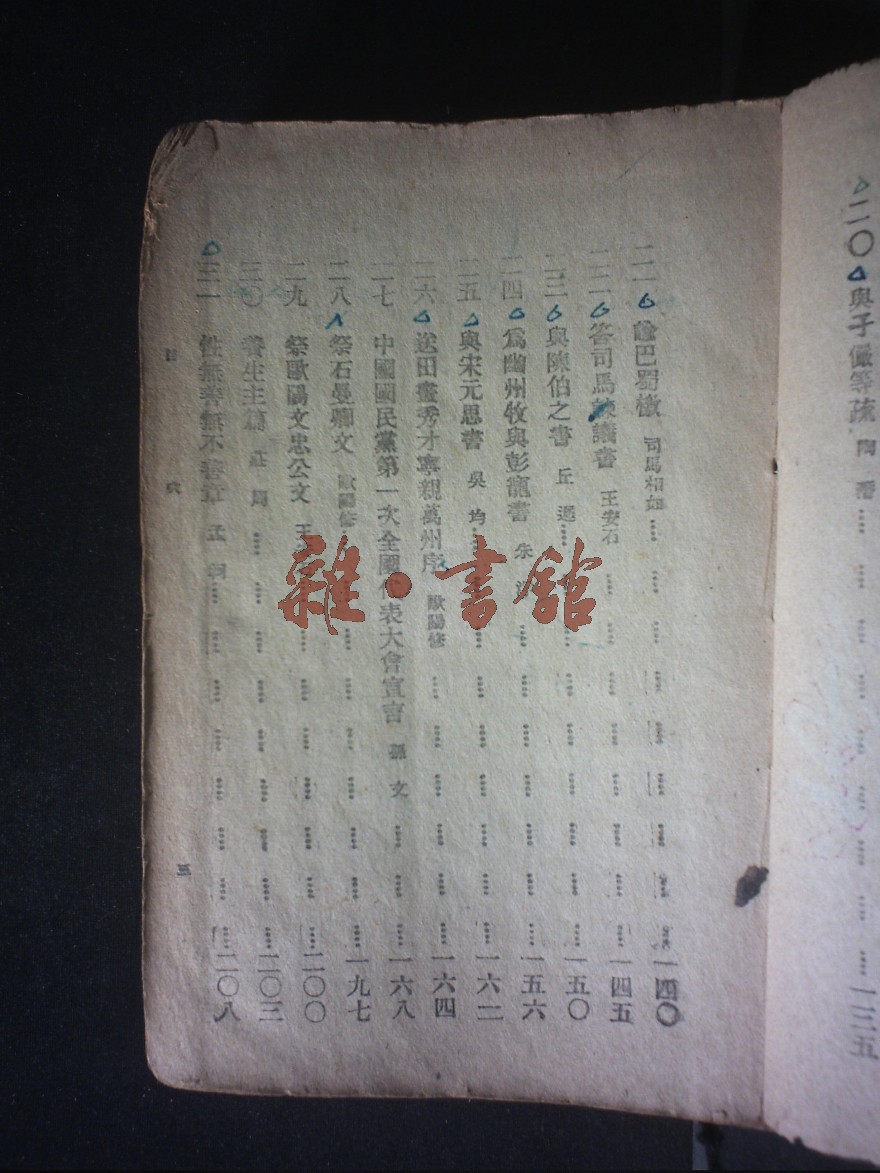 二〇 與子儼等疏 陶潛 一三五
二一 諭巴蜀檄 司馬相如 一四〇
二二 答司馬諫議書 王安石 一四五
二三 與陳伯之書 丘遲 一五〇
二四 為幽州牧與彭寵書 朱 一五六
二五 與宋元思書 吳均 一六二
二六 送田畫秀才寧親萬州序 歐陽修 一六四
二七 中國國民黨第一次全國代表大會宣言 孫文 一六八
二八 祭石曼卿文 歐陽修 一九七
二九 祭歐陽文忠公文 王 二〇〇
三〇 養生主篇 莊周 二〇三
三一 性無善無不善章 孟軻 二〇八
目次
三
雜·書館